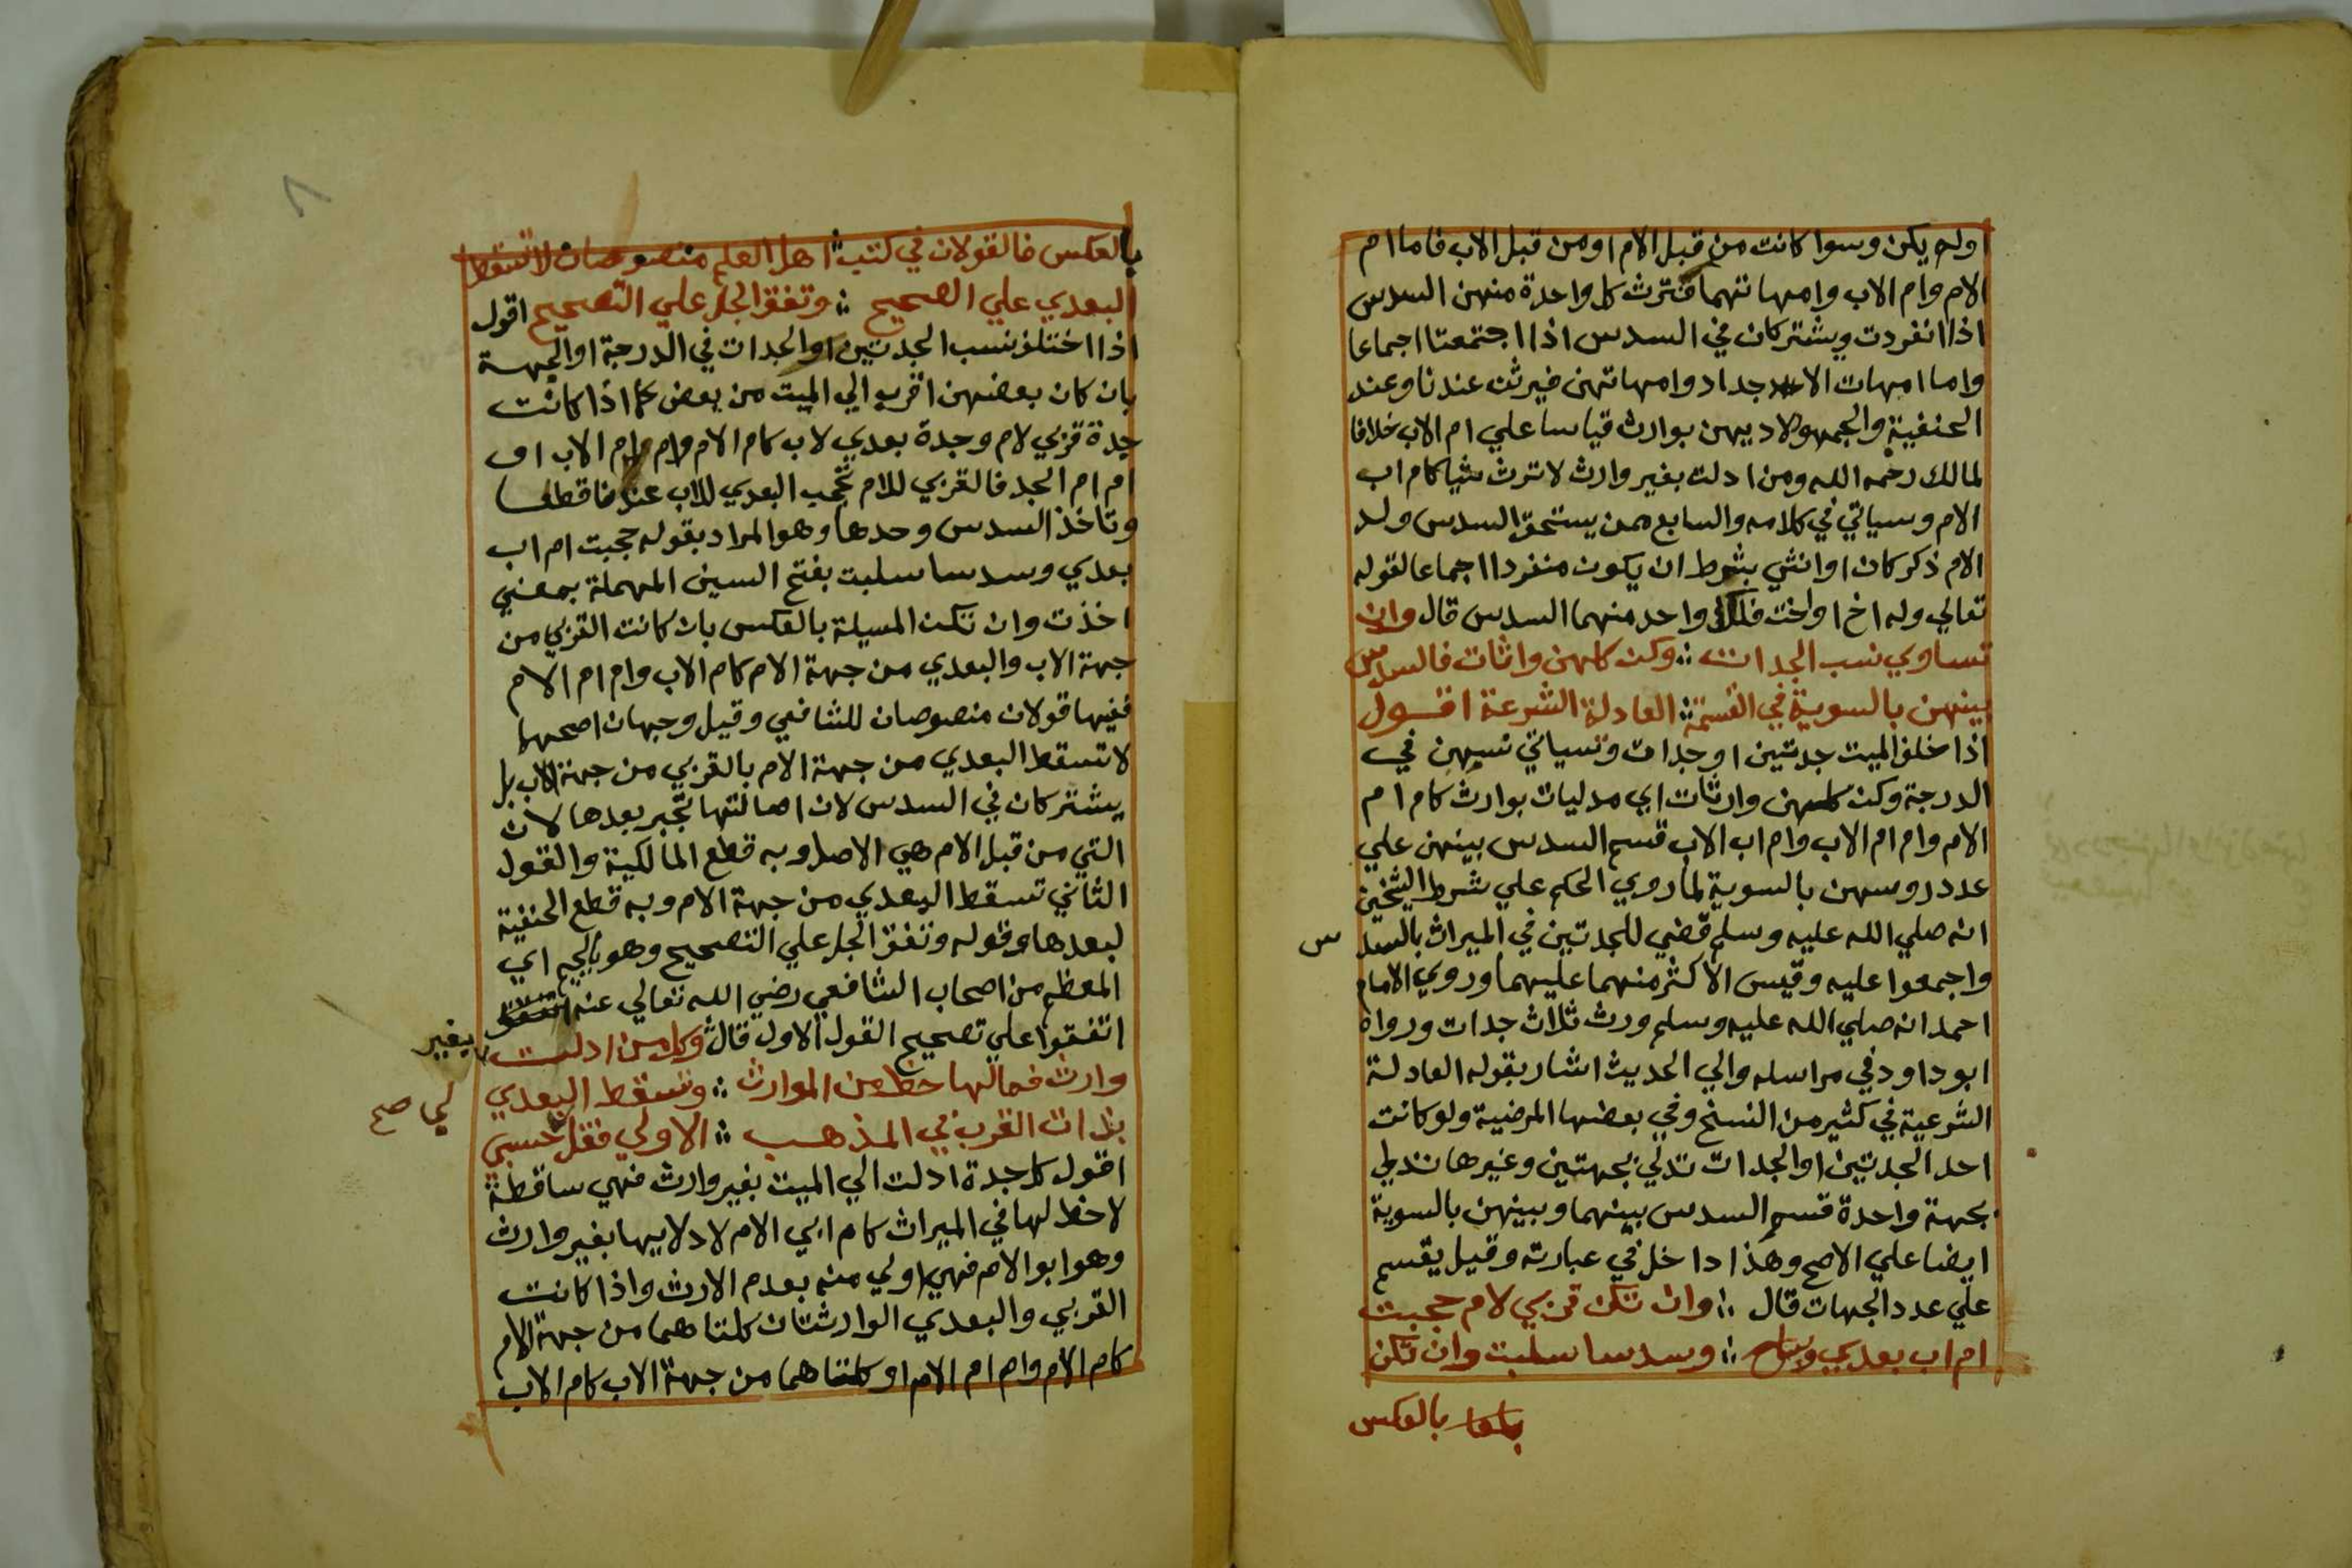 اولم يكن وسوا كانت من قبل الام اومن قبل الاب فاما ام
الام وام الاب وامهاتهما فترث كل واحدة منهن السدس
اذا انفردت ويشتركان في السدس اذا اجتمعتا اجماعا
واما امهات الاجداد وامهاتهن فيرثن عندنا وعند
الحنفية والجمهو لادبيهن بوارث قياسا علي ام الاب خلافا
لمالك رحمه الله ومن ادلت بغير وارث لا ترث شيا كام اب
الام وسياتي في كلامه والسابع ممن يستحق السدس ولد
الام ذكر كان او انثي بشرط ان يكون منفردا اجماعا لقوله
تعالي وله اخ او اخت فلكل واحد منهما السدس قال وان
تساوي نسب الجدات ؞ وكن كلهن وارثات فالسدس
بينهن بالسوية في القسمة ؞ العادلة الشرعة اقول
اذا خلف الميت جدتين او جدات وتسياتي نسبهن في
الدرجة وكن كلهن وارثات اي مدليات بوارث كام ام
الام وام ام الاب وام اب الاب قسم السدس بينهن علي
عدد روسهن بالسوية لما روي الحكم علي شرط الشيخين
انه صلي الله عليه وسلم قضي للجدتين في الميراث بالسد س
واجمعوا عليه وقيس الاكثر منهما عليهما وروي الامام
احمد انه صلي الله عليه وسلم ورث ثلاث جدات ورواه
ابو داود في مراسله والي الحديث اشار بقوله العادلة
الشرعية في كثير من النسخ وفي بعضها المرضية ولو كانت
احد الجدتين او الجدات تدلي بجهتين وغيرها تدلي
بجهة واحدة قسم السدس بينهما وبينهن بالسوية
ايضا علي الاصح وهذا داخل في عبارته وقيل يقسم
علي عدد الجهات قال ؞ وان تكن قربي لام حجبت
ام اب بعدي ؞ وسدسا سلبت وان تكن
بالعكس
بالعكس فالقولان في كتب ؞ اهل العلم منصوصان لا تسقط
البعدي علي الصحيح ؞ وتفق الجل علي التصحيح اقول
اذا اختلف نسب الجدتين او الجدات في الدرجة او الجهة
بان كان بعضهن اقرب الي الميت من بعض كما اذا كانت
جدة قربي لام وجدة بعدي لاب كام الام وام ام الاب او
ام ام الجد فالقربي للام تحجب البعدي للاب عندنا قطعا
وتاخذ السدس وحدها وهو المراد بقوله حجبت ام اب
بعدي وسدسا سلبت بفتح السين المهملة بمعني
اخذت وان تكن المسيلة بالعكس بان كانت القربي من
جهة الاب والبعدي من جهة الام كام الاب وام ام الام
ففيها قولان منصوصان للشافعي وقيل وجهان اصحها
لا تسقط البعدي من جهة الام بالقربي من جهة الاب بل
يشتركان في السدس لان اصالتها تجبر بعدها لان
التي من قبل الام هي الاصل وبه قطع المالكية والقول
الثاني تسقط البعدي من جهة الام وبه قطع الحنفية
لبعدها وقوله وتفق الجل علي التصحيح وهو بالجيم اي
المعظم من اصحاب الشافعي رضي الله تعالي عنه
اتفقوا علي تصحيح القول الاول قال وكل من ادلت بغير
وارث فمالها حظ من الموارث ؞ وتسقط البعدي
بذات القرب في المذهب ؞ الاولي فقل حسبي لي صح
اقول كل جدة ادلت الي الميت بغير وارث فهي ساقطة
لا حظ لها في الميراث كام ابي الام لادلايها بغير وارث
وهو ابو الام فهي اولي منه بعدم الارث واذا كانت
القربي والبعدي الوارثتان كلتاهما من جهة الام
كام الام وام ام الام او كلتاهما من جهة الاب كام الاب